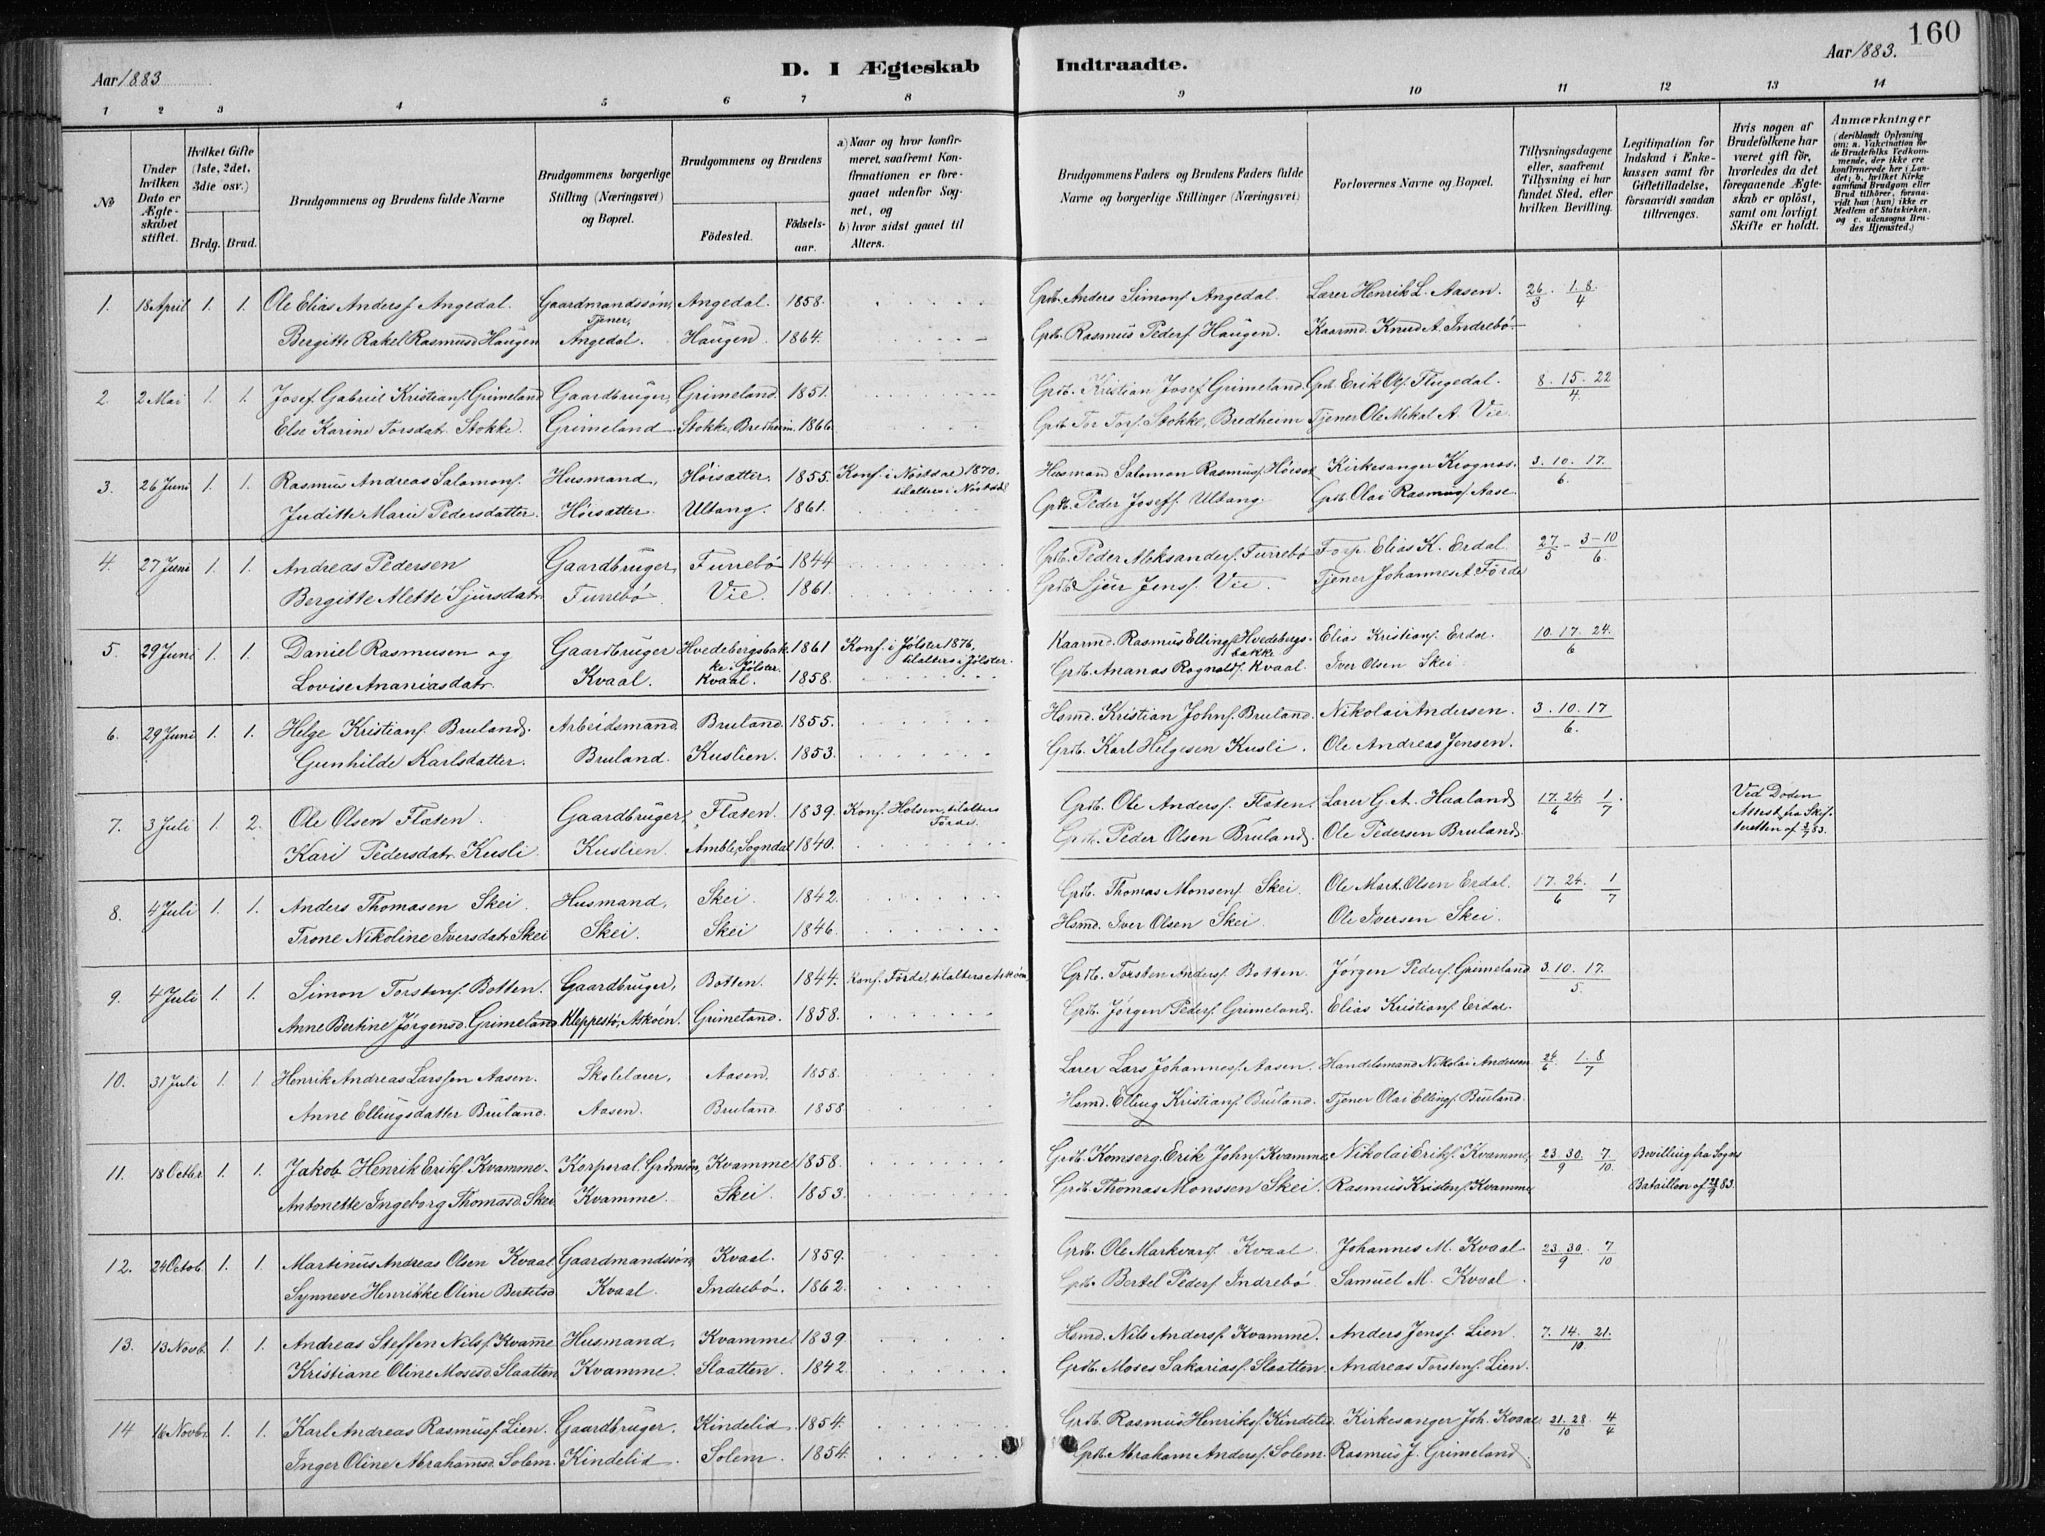 160
Aar 1883.
D. I Ægteskab Indtraadte.
Aar 1883.
1 2 3 4 5 6 7 8 9 10 11 12 13 14
No
Under hvilken Dato er Ægteskabet stiftet.
Hvilket Gifte (1ste, 2det, 3die osv.)
Brdg. Brud.
Brudgommens og Brudens fulde Navne
Brudgommens borgerlige Stilling (Næringsvei) og Bopæl.
Brudgommens og Brudens
Födested. Födselsaar.
a) Naar og hvor konfirmeret, saafremt Konfirmationen er foregaaet udenfor Sognet, og
b) hvor sidst gaaet til Alters.
Brudgommens Faders og Brudens Faders fulde Navne og borgerlige Stillinger (Næringsvei)
Forlovernes Navne og Bopæl.
Tillysningsdagene eller, saafremt Tillysning ei har fundet Sted, efter hvilken Bevilling.
Legitimation for Indskud i Enkekassen samt for Giftetilladelse, forsaavidt saadan tiltrænges.
Hvis nogen af Brudefolkene har været gift för, hvorledes da det foregaaende Ægteskab er oplöst, samt om lovligt Skifte er holdt.
Anmærkninger (deriblandt Oplysning om: a. Vakcination for de Brudefolks Vedkommende, der ikke ere konfirmerede her i Landet; b. hvilket Kirkesamfund Brudgom eller Brud tilhörer, forsaavidt han (hun) ikke er Medlem af Statskirken, og c. udensogns Brudes Hjemsted.)
1. 18 April 1. 1. Ole Elias Andersf Angedal. Gaardmandssön, Angedal. 1858. Grdb. Anders Simonf Angedal. Lærer Henrik L. Aasen. 26/3 . 1.8./4
Tjener,
Bergitte Rakel Rasmusd Haugen Angedal. Haugen. 1864. Grdb. Rasmus Pedersf Haugen. Kaarmd. Knud A. Indrebö
2. 2 Mai 1. 1. Josef Gabriel Kristianf Grimeland Gaardbruger, Grimeland. 1851. Grdb. Kristian Josef Grimeland. Grdb. Erik Olf Flugedal. 8. 15. 22/4.
Else Karine Torsdatr Stokke. Grimeland. Stokke, Bredheim. 1866. Grdb. Tor Torf. Stokke, Bredheim Tjener Ole Mikal A. Vie.
3. 26 Juni 1. 1. Rasmus Andreas Salomonf. Husmand, Höisætter. 1855. Konf. i Nöstdal 1870. tilalters i Nöstdal Husmand Salomon Rasmusf Höisæt Kirkesanger Krognæs. 3. 10. 17./6.
Juditte Marie Pedersdatter. Höisætter. Ultang. 1861. Grdb. Peder Joseff. Ultang. Grdb. Olai Rasmusf Aase.
4. 27 Juni 1. 1. Andreas Pedersen Gaardbruger, Furrebö 1844 Grdb. Peder Aleksandersf. Furrebö Forp. Elias K. Erdal. 27/5 - 3-10/6.
Bergitte Alette Sjursdatr Furrebö. Vie. 1861. Grdb Sjur Jensf. Vie. Tjener Johannes A. Förde
5. 29 Juni 1. 1. Daniel Rasmusen og Gaardbruger Hvedebergsbakke i Jölster. 1861 Konf. i Jölster 1876, tilalters i Jölster. Kaarmd. Rasmus Ellingf Hvedebergsbakke Elias Kristianf Erdal. 10. 17. 24./6
Lovise Ananiasdatr. Kvaal. Kvaal. 1858. Grdb. Ananas Rognaldf. Kvaal. Iver Olsen Skei
6. 29 Juni 1. 1. Helge Kristianf Bruland. Arbeidsmand. Bruland 1855. Hsmd. Kristian Johnf. Bruland. Nikolai Andersen. 3. 10. 17/6.
Gunhilde Karlsdatter. Bruland. Kuslien. 1853. Grdb. Karl Helgesen Kusli. Ole Andreas Jensen.
7. 3 Juli 1. 2. Ole Olsen Flaten. Gaardbruger, Flaten. 1839. Konf. Holsen, tilalters Förde. Grdb. Ole Andersf Flaten. Lærer G. A. Haaland 17. 24./6 1/7. Ved Döden Attest fra Skifteretten af 2/7 83.
Kari Pedersdatr Kusli. Kuslien. Amble, Sogndal 1840. Grdb. Peder Olsen Bruland. Ole Pedersen Bruland.
8. 4 Juli 1. 1. Anders Thomasen Skei. Husmand, Skei. 1842. Grdb. Thomas Monsenf. Skei. Ole Mart. Olsen Erdal. 17. 24./6 1/7
Trone Nikoline Iversdatr Skei Skei. Skei 1846. Hsmd. Iver Olsen Skei Ole Iversen Skei.
9. 4 Juli 1. 1. Simon Torstenf. Botten. Gaardbruger, Botten. 1844. Konf. Förde, tilalters Asköen. Grdb. Torsten Andersf Botten. Jörgen Pedersf. Grimeland 3. 10. 17./5.
Anne Bertine Jörgensd. Grimeland Kleppestö, Asköen. Grimeland. 1858. Grdb. Jörgen Pedersf Grimeland. Elias Kristianf Erdal.
10. 31 Juli 1. 1. Henrik Andreas Larssen Aasen. Skolelærer, Aasen. 1858. Lærer Lars Johannesf Aasen. Handelsmand Nikolai Andersen 24/6. 1.8/7
Anne Ellingsdatter Bruland. Aasen. Bruland. 1858. Hsmd. Elling Kristianf Bruland. Tjener Olai Ellingf Bruland.
11. 18 Octbr 1. 1. Jakob Henrik Erikf. Kvamme. Korporal, Grdmsön, Kvamme 1858. Grdb. Komserg. Erik Johnf Kvamme. Nikolai Erikf. Kvamme, 23. 30./9 7/10 Bevilling fra Sogns Bataillon af 28/9 83.
Antonette Ingeborg Thomasd. Skei. Kvamme. Skei. 1853. Grdb. Thomas Monssen Skei. Rasmus Kristenf Kvamme
12. 24 Octob. 1. 1. Martinus Andreas Olsen Kvaal Gaardmandssön, Kvaal. 1859. Grdb. Ole Markvarf Kvaal. Johannes M. Kvaal 23. 30./9 7/10
Synneve Henrikke Oline Bertelsd. Kvaal. Indrebö. 1862. Grdb. Bertel Pedersf Indrebö. Samuel M. Kvaal.
13. 13 Novb. 1. 1. Andreas Steffen Nilsf. Kvamme Husmand, Kvamme. 1839 Hsmd. Nils Andersf. Kvamme. Anders Jensf. Lien. 7. 14. 21./10
Kristiane Oline Mosesd. Slaatten Kvamme. Slaatten. 1842. Grdb. Moses Sakariasf Slaatten. Andreas Torstenf Lien.
14 16 Novbr. 1. 1. Karl Andreas Rasmusf. Lien. Gaardbruger. Kindelid. 1854. Grdb. Rasmus Henrikf. Kindelid. Kirkesanger Joh. Kvaal 21. 28./10 4/4
Inger Oline Abrahamsd. Solem. Kindelid. Solem. 1854. Grdb. Abraham Andersf. Solem. Rasmus J. Grimeland.